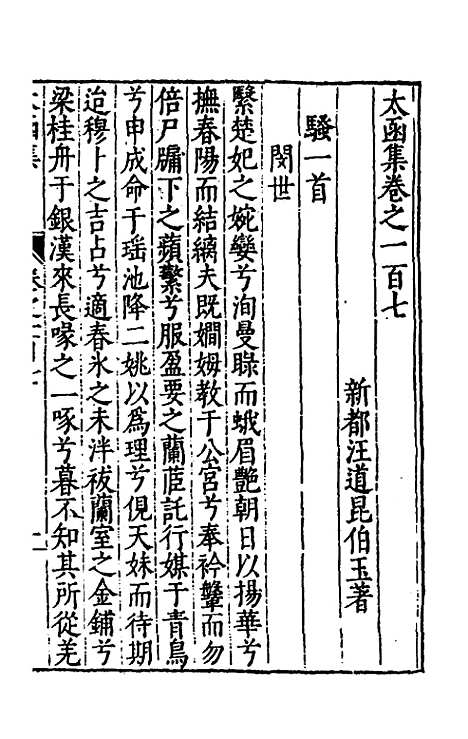 太函集卷之一百七
新都汪道昆伯玉著
騷一首
閔世
繄楚妃之婉孌兮洵曼睩而蛾眉艷朝日以揚華兮
撫春陽而結縭夫既嫺姆教于公宮兮奉衿鞶而勿
倍尸牖下之蘋蘩兮服盈要之蘭茝託行媒于青鳥
兮申成命于瑤池降二姚以為理兮俔天妹而待期
迨穆卜之吉占兮適春氷之未泮袚蘭室之金鋪兮
梁桂舟于銀漢來長喙之一啄兮暮不知其所從羌